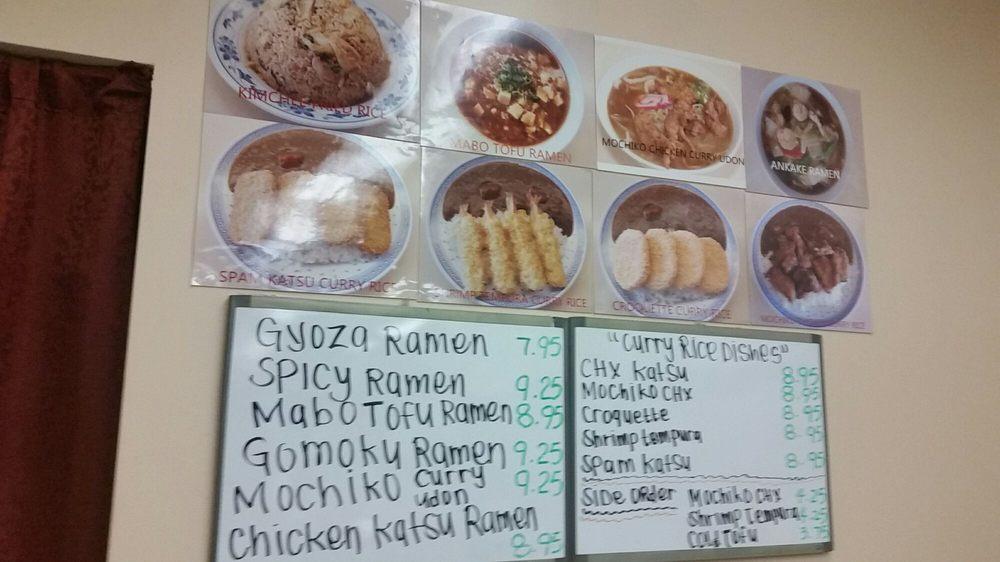 KIMCHEE FRIED RICE
MABO TOFU RAMEN
MOCHIKO CHICKEN CURRY UDON
ANKAKE RAMEN
SPAM KATSU CURRY RICE
SHRIMP TEMPURA CURRY RICE
CROQUETTE CURRY RICE
Gyoza Ramen 7.95
Spicy Ramen 9.25
Mabo Tofu Ramen 8.95
Gomoku Ramen 9.25
Mochiko Curry udon 9.25
Chicken Katsu Ramen
8.95
"Curry Rice Dishes"
CHX Katsu 8.95
Mochiko CHX 8.95
Croquette 8.95
Shrimp tempura 8.95
Spam Katsu 8.95
Side Order Mochiko CHX 4.25
Shrimp Tempura 4.25
Cold Tofu 3.75